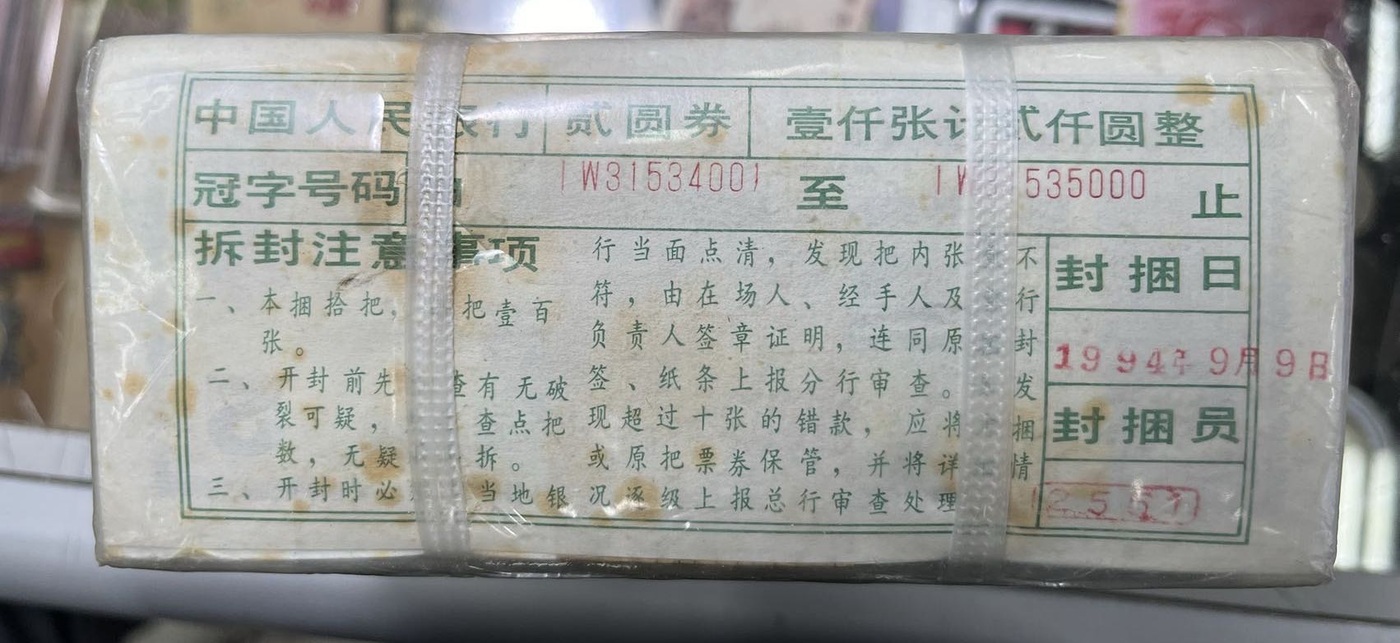 中国人民 行 贰圆券 壹仟张计贰仟圆整
冠字号码 IW31534001 至 IW 535000 止
拆封注意事项
一、本捆拾把, 把壹百
张。
二、开封前先 查有无破
裂可疑, 查点把
数,无疑 拆。
三、开封时必 当地银
行当面点清,发现把内张 不
符,由在场人、经手人及 行
负责人签章证明,连同原 封
签、纸条上报分行审查。 发
现超过十张的错款,应将 捆
或原把票券保管,并将详 情
况逐级上报总行审查处理
封捆日
1994年9月9日
封捆员